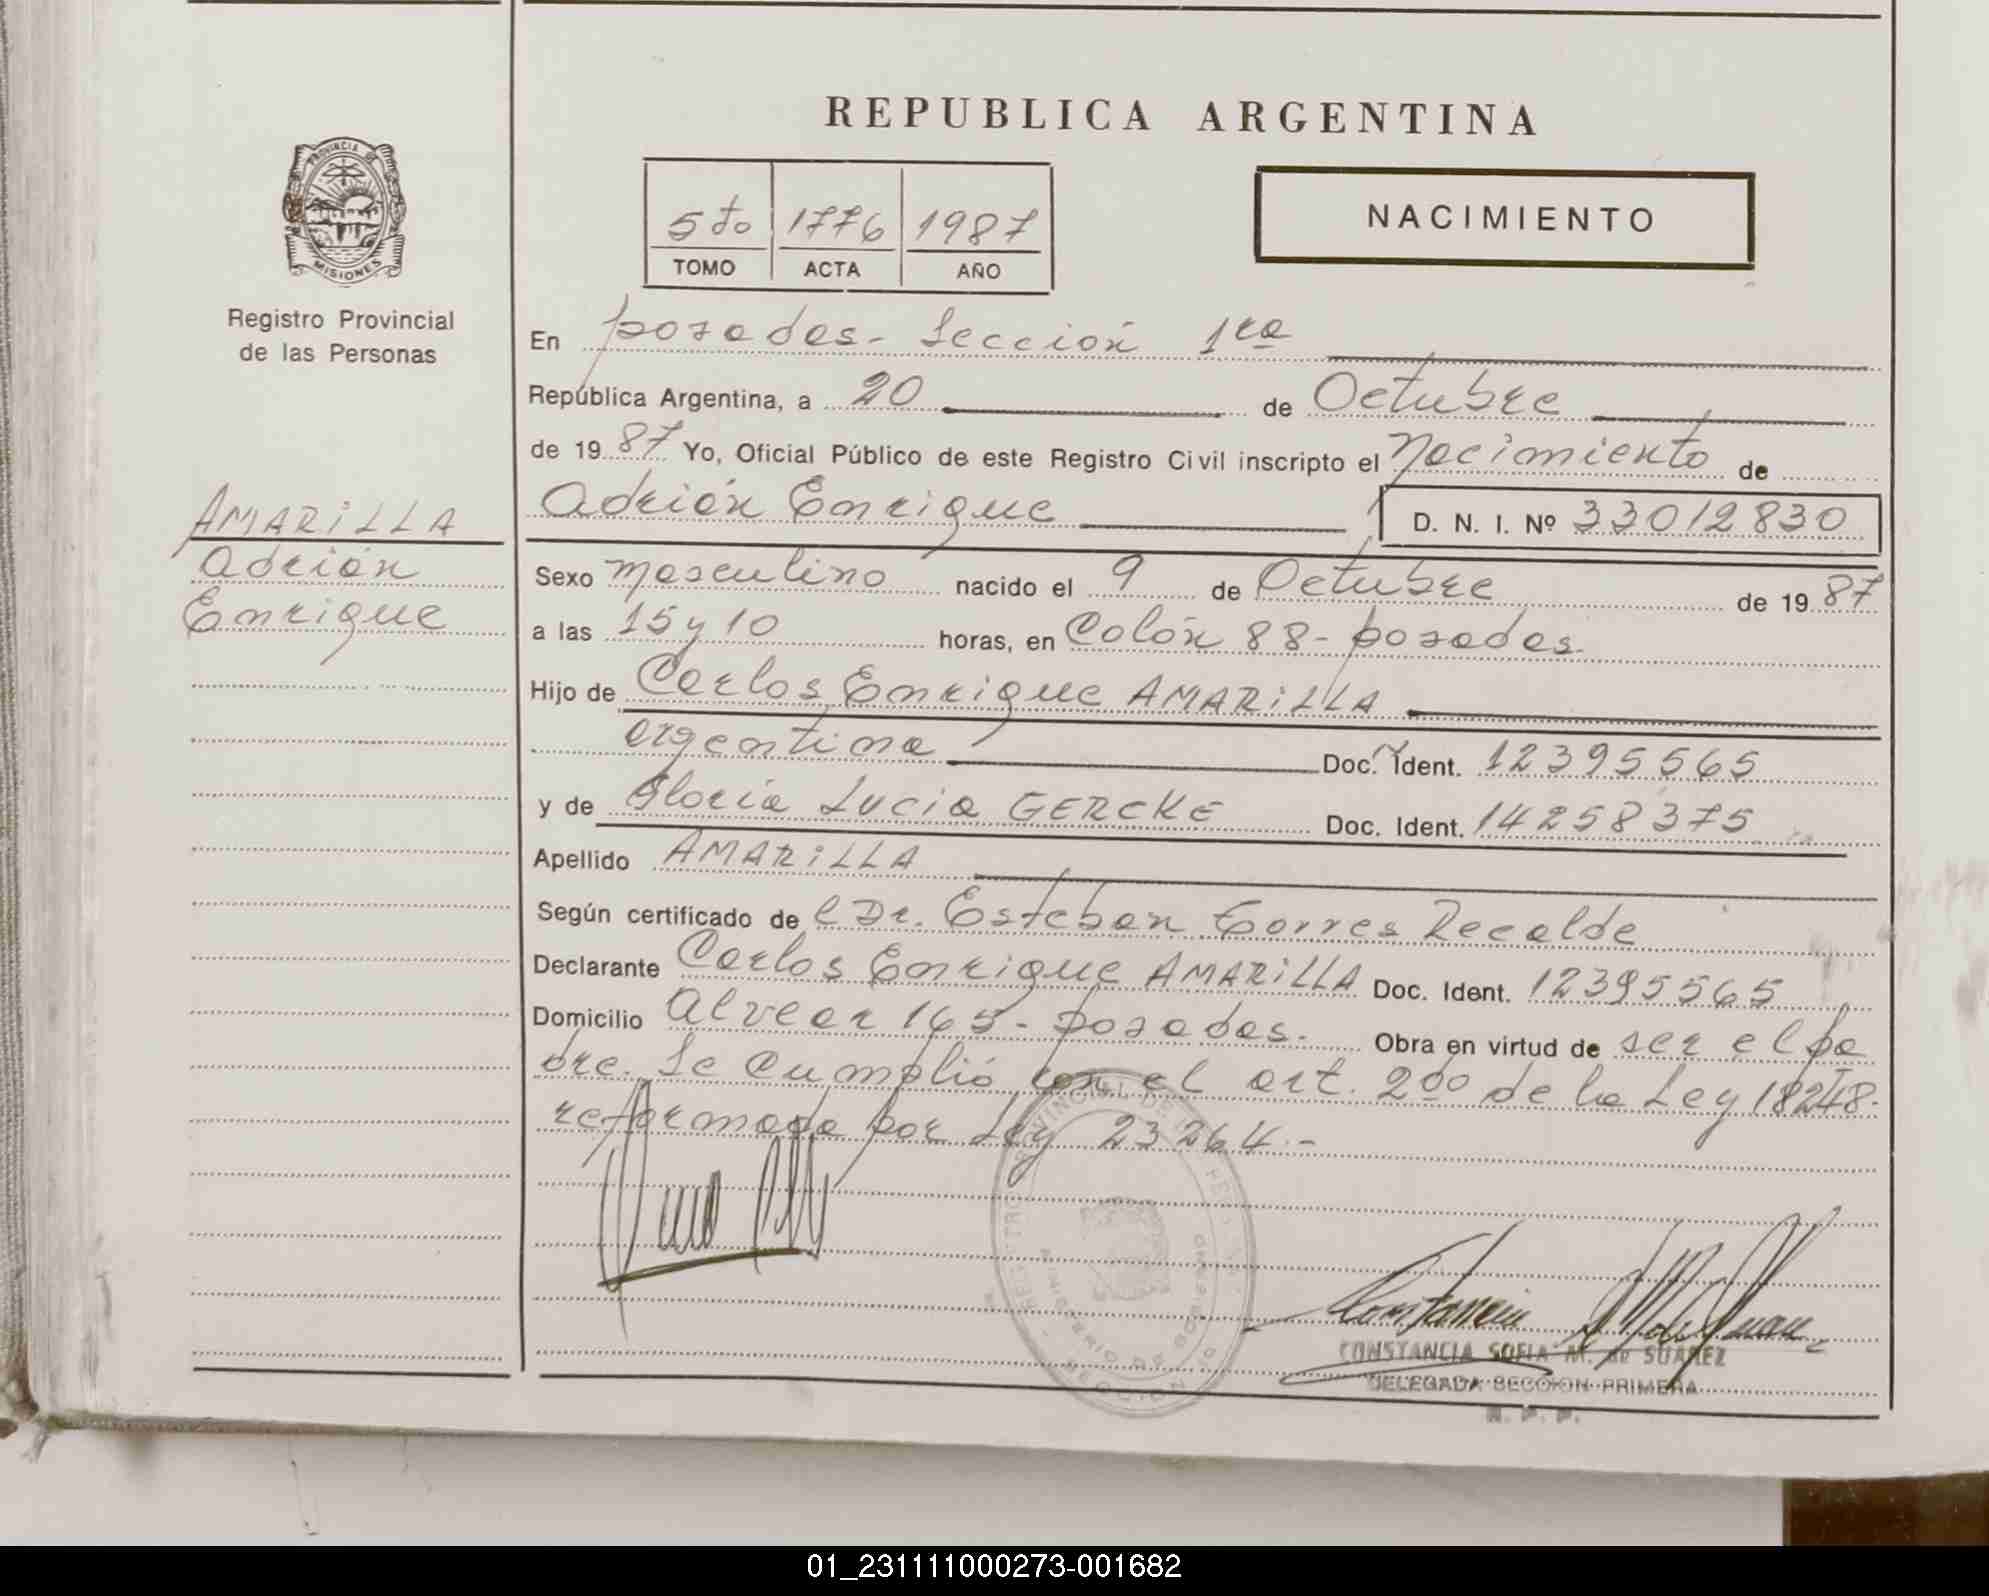 REPUBLICA ARGENTINA
PROVINCIA DE
MISIONES
Registro Provincial
de las Personas
5to 1776 1987
TOMO ACTA AÑO
NACIMIENTO
En posadas - Sección 1ra
República Argentina, a 20 de Octubre
de 1987 Yo, Oficial Público de este Registro Civil inscripto el Nacimiento de
Adrián Enrique D. N. I. Nº 33012830
AMARILLA
Adrián
Enrique
Sexo masculino nacido el 9 de Octubre de 1987
a las 15 y 10 horas, en Colón 88 - posadas.
Hijo de Carlos Enrique AMARILLA
argentina Doc. Ident. 12395565
y de Gloria Lucia GERCKE Doc. Ident. 14258375
Apellido AMARILLA
Según certificado de el Dr. Esteban Torres Recalde
Declarante Carlos Enrique AMARILLA Doc. Ident. 12395565
Domicilio Alvear 165 - posadas. Obra en virtud de ser el pa
dre. Se cumplió con el art. 2do de la Ley 18248.
reformada por Ley 23264.-
CONSTANCIA SOFIA M. de SUAREZ
DELEGADA SECCION PRIMERA
R. P. P.
01_231111000273-001682